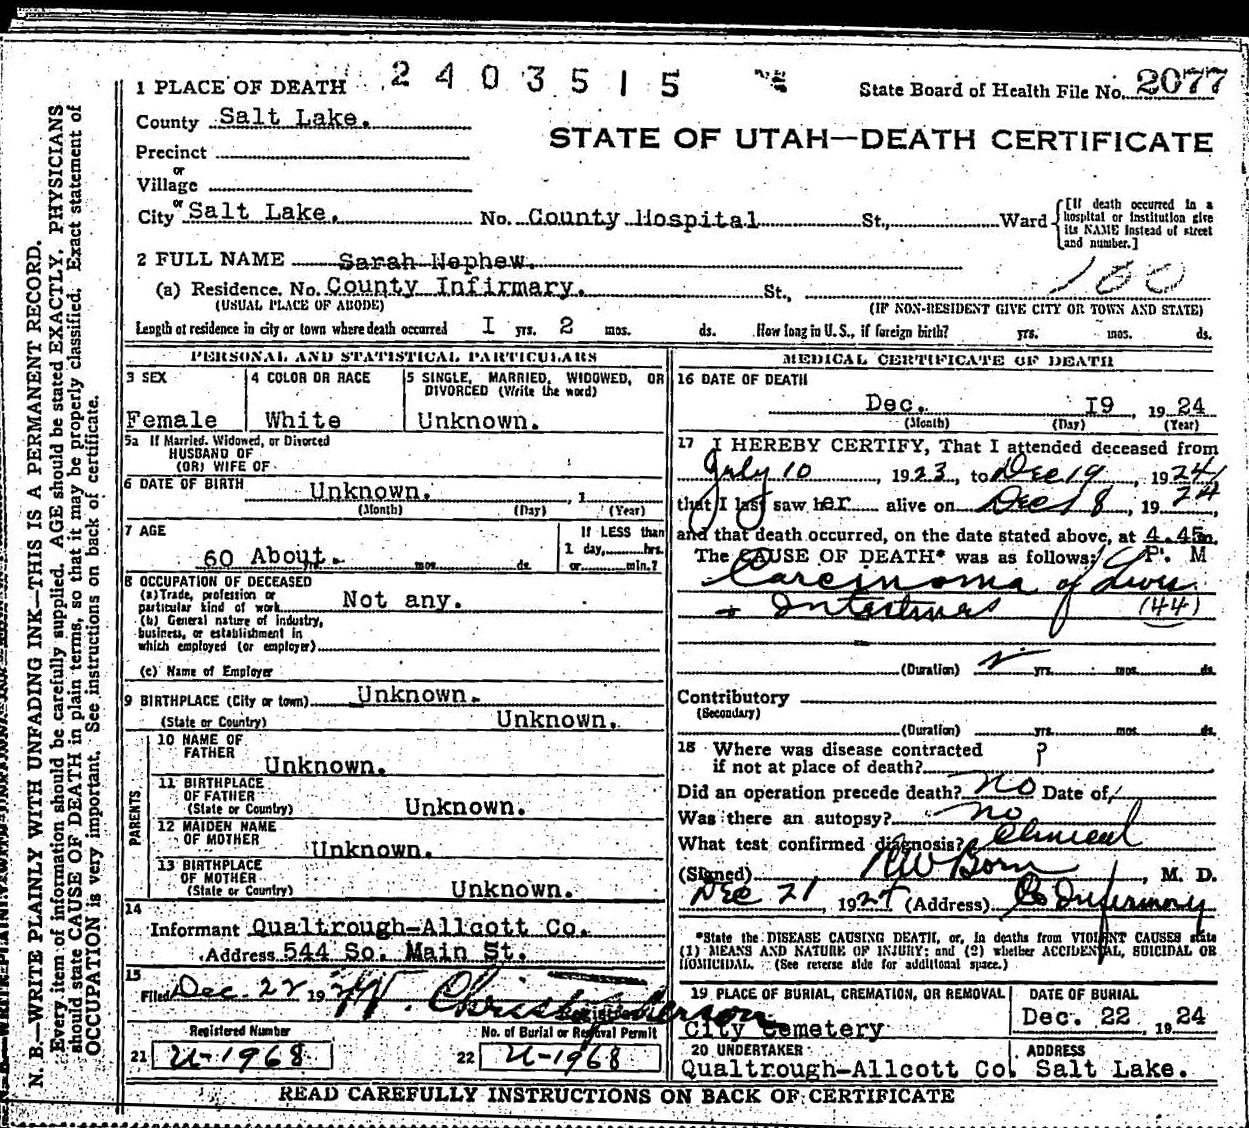 1 PLACE OF DEATH 2403515
State Board of Health File No. 2077
County Salt Lake.
STATE OF UTAH—DEATH CERTIFICATE
Precinct
or
Village
or
City Salt Lake. No. County Hospital St., Ward
[If death occurred in a hospital or institution give its NAME instead of street and number.]
2 FULL NAME Sarah Nephew.
100
(a) Residence. No. County Infirmary. St.,
(USUAL PLACE OF ABODE) (IF NON-RESIDENT GIVE CITY OR TOWN AND STATE)
Length of residence in city or town where death occurred I yrs. 2 mos. ds. How long in U.S., if foreign birth? yrs. mos. ds.
PERSONAL AND STATISTICAL PARTICULARS
3 SEX
Female
4 COLOR OR RACE
White
5 SINGLE, MARRIED, WIDOWED, OR
DIVORCED (Write the word)
Unknown.
5a If Married, Widowed, or Divorced
HUSBAND OF
(OR) WIFE OF
6 DATE OF BIRTH Unknown. , 1
(Month) (Day) (Year)
7 AGE
60 About. mos. ds.
If LESS than
1 day, hrs.
or min.?
8 OCCUPATION OF DECEASED
(a) Trade, profession or
particular kind of work Not any.
(b) General nature of industry,
business, or establishment in
which employed (or employer)
(c) Name of Employer
9 BIRTHPLACE (City or town) Unknown.
(State or Country) Unknown.
PARENTS
10 NAME OF
FATHER
Unknown.
11 BIRTHPLACE
OF FATHER
(State or Country) Unknown.
12 MAIDEN NAME
OF MOTHER
Unknown.
13 BIRTHPLACE
OF MOTHER
(State or Country) Unknown.
14
Informant Qualtrough-Allcott Co.
Address 544 So. Main St.
15
Filed Dec. 22 1924 W. Christopherson
Registrar
Registered Number
21 U-1968
No. of Burial or Removal Permit
22 U-1968
MEDICAL CERTIFICATE OF DEATH
16 DATE OF DEATH
Dec. I9, 1924
(Month) (Day) (Year)
17 I HEREBY CERTIFY, That I attended deceased from
July 10, 1923, to Dec 19, 1924
that I last saw her alive on Dec 18, 1924,
and that death occurred, on the date stated above, at 4.45m.
The CAUSE OF DEATH* was as follows: P. M
Carcinoma of Liver
+ Intestines (44)
(Duration) yrs. mos. ds.
Contributory
(Secondary)
(Duration) yrs. mos. ds.
18 Where was disease contracted
if not at place of death? ?
Did an operation precede death? no Date of
Was there an autopsy? no
What test confirmed diagnosis? Clinical
(Signed) RW Born, M. D.
Dec 21, 1924 (Address) Co Infirmary
*State the DISEASE CAUSING DEATH, or, in deaths from VIOLENT CAUSES state
(1) MEANS AND NATURE OF INJURY; and (2) whether ACCIDENTAL, SUICIDAL OR
HOMICIDAL. (See reverse side for additional space.)
19 PLACE OF BURIAL, CREMATION, OR REMOVAL
City Cemetery
DATE OF BURIAL
Dec. 22, 1924
20 UNDERTAKER
Qualtrough-Allcott Co.
ADDRESS
Salt Lake.
READ CAREFULLY INSTRUCTIONS ON BACK OF CERTIFICATE
N. B.—WRITE PLAINLY WITH UNFADING INK—THIS IS A PERMANENT RECORD.
Every item of information should be carefully supplied. AGE should be stated EXACTLY. PHYSICIANS
should state CAUSE OF DEATH in plain terms, so that it may be properly classified. Exact statement of
OCCUPATION is very important. See instructions on back of certificate.